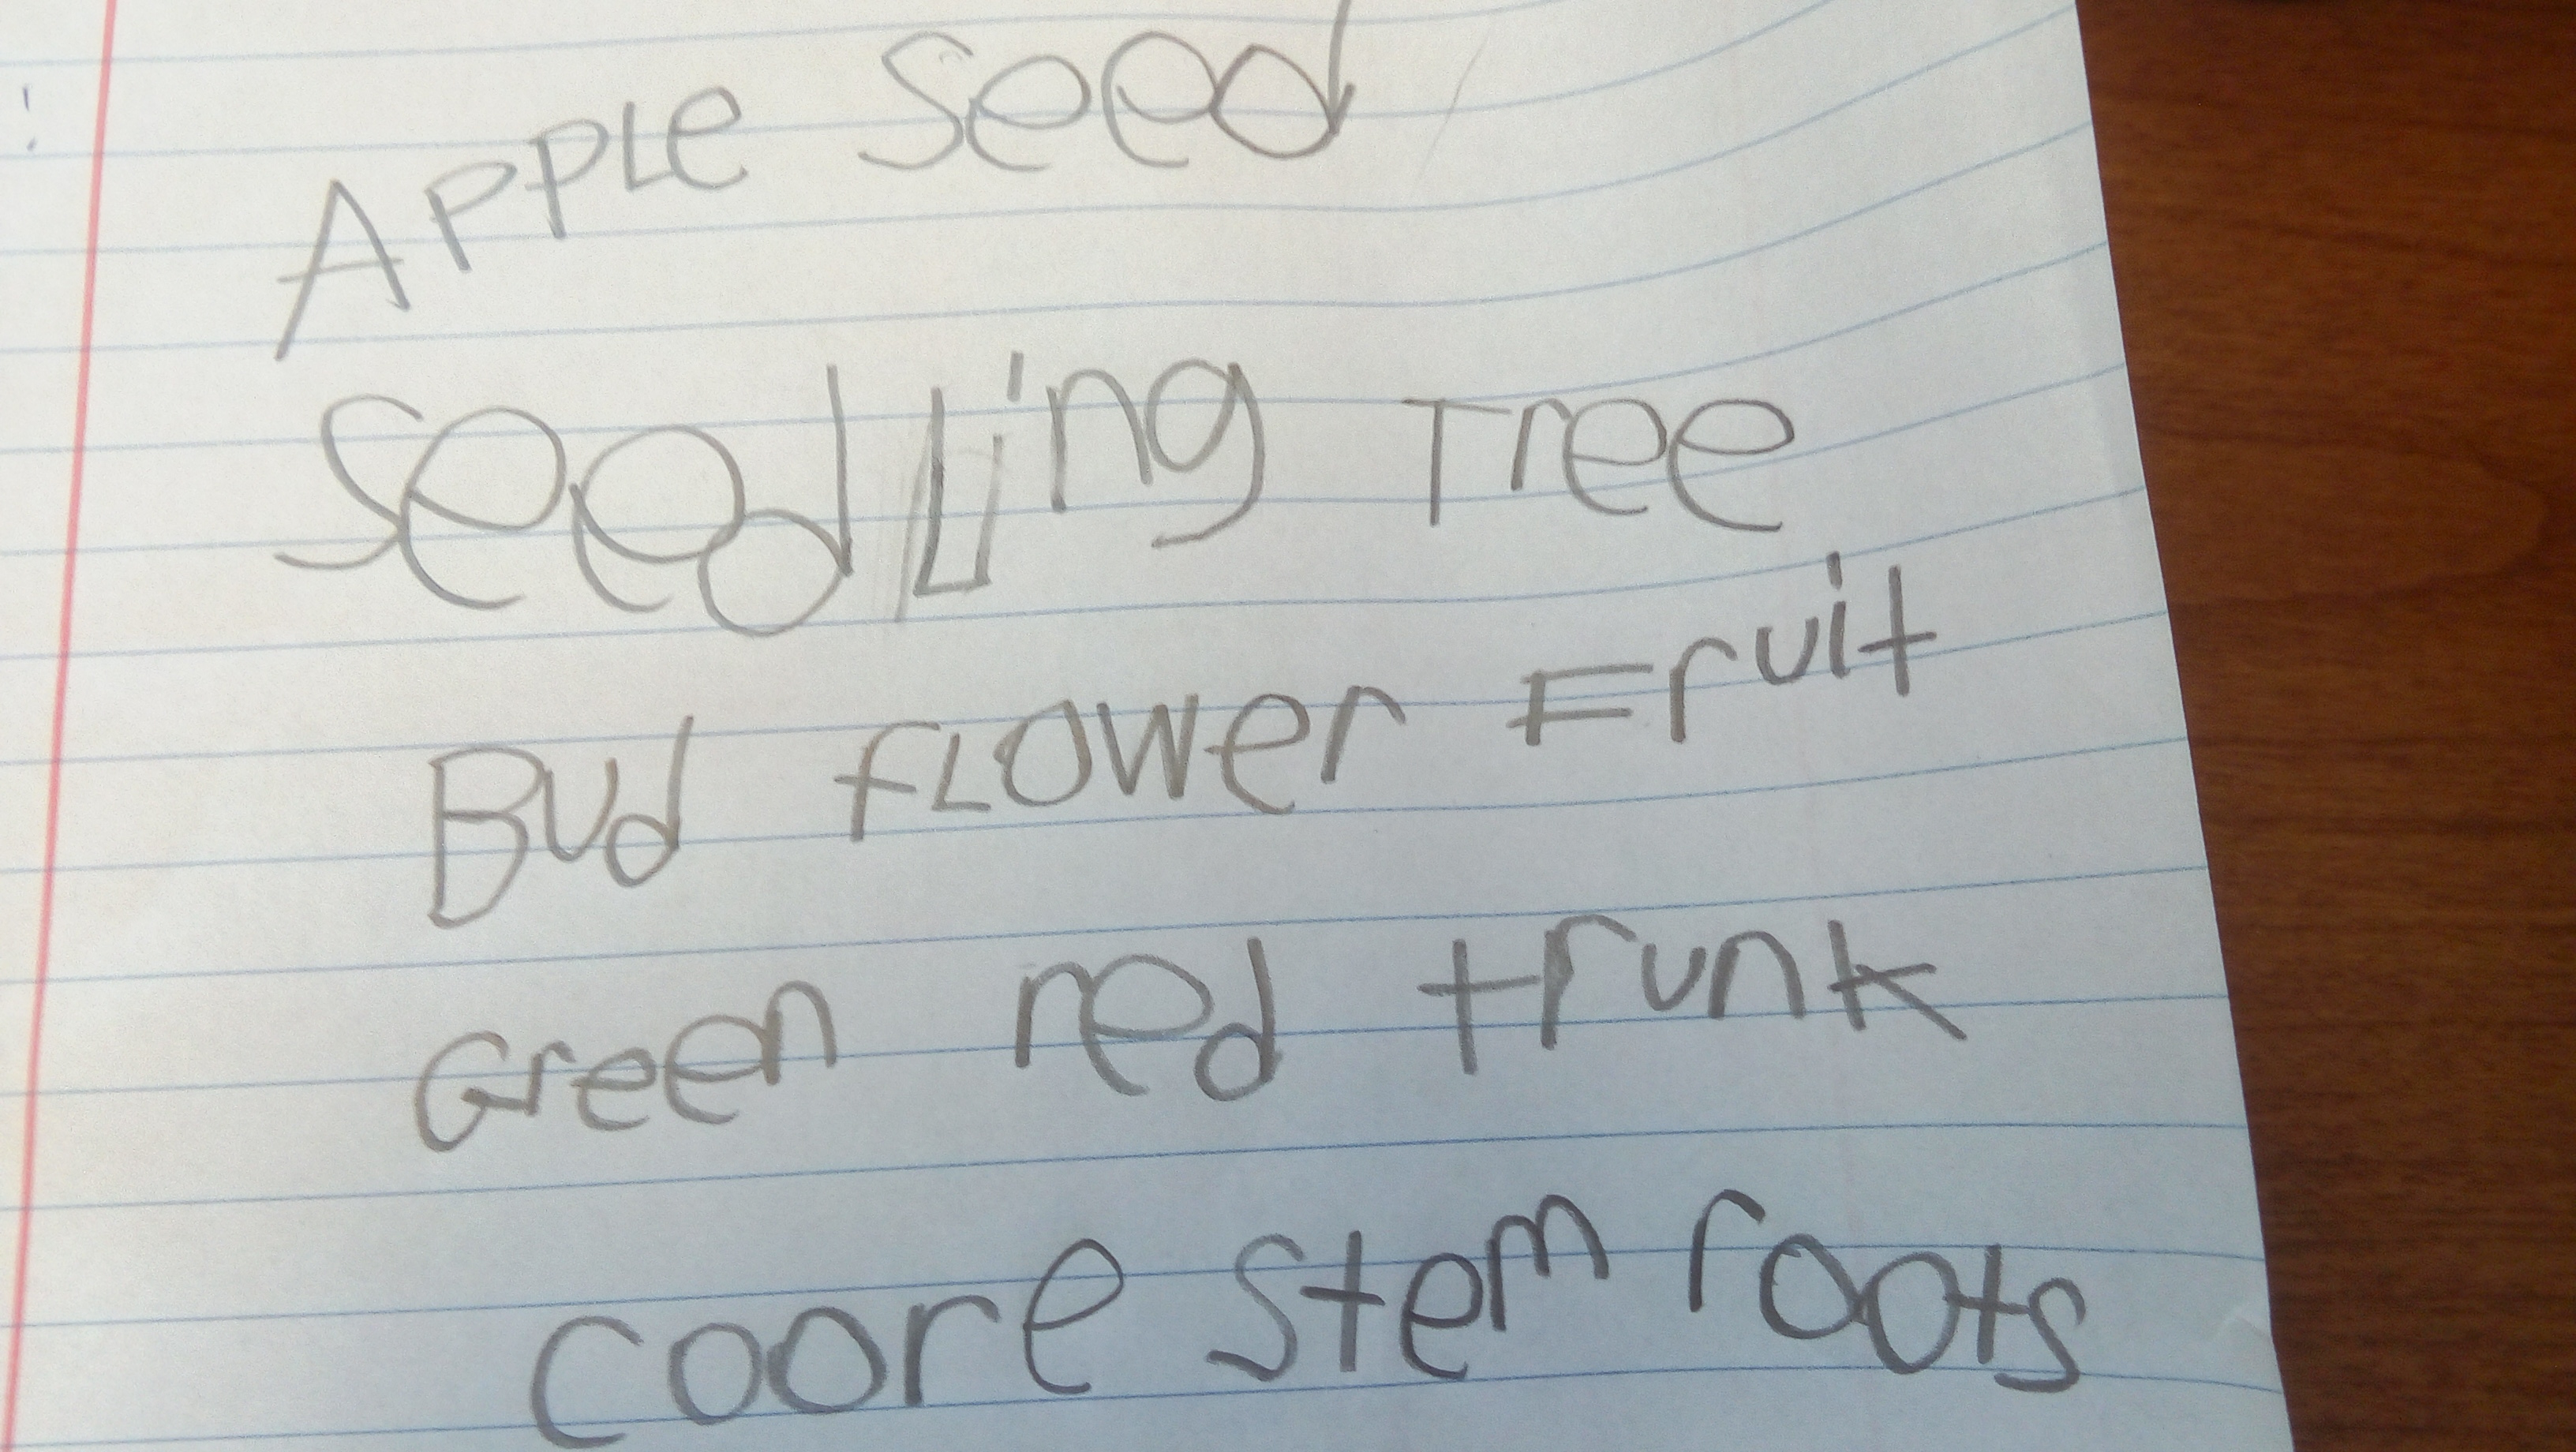 APPLe seed
seedLing Tree
Bud fLower Fruit
Green red trunk
coore stem roots